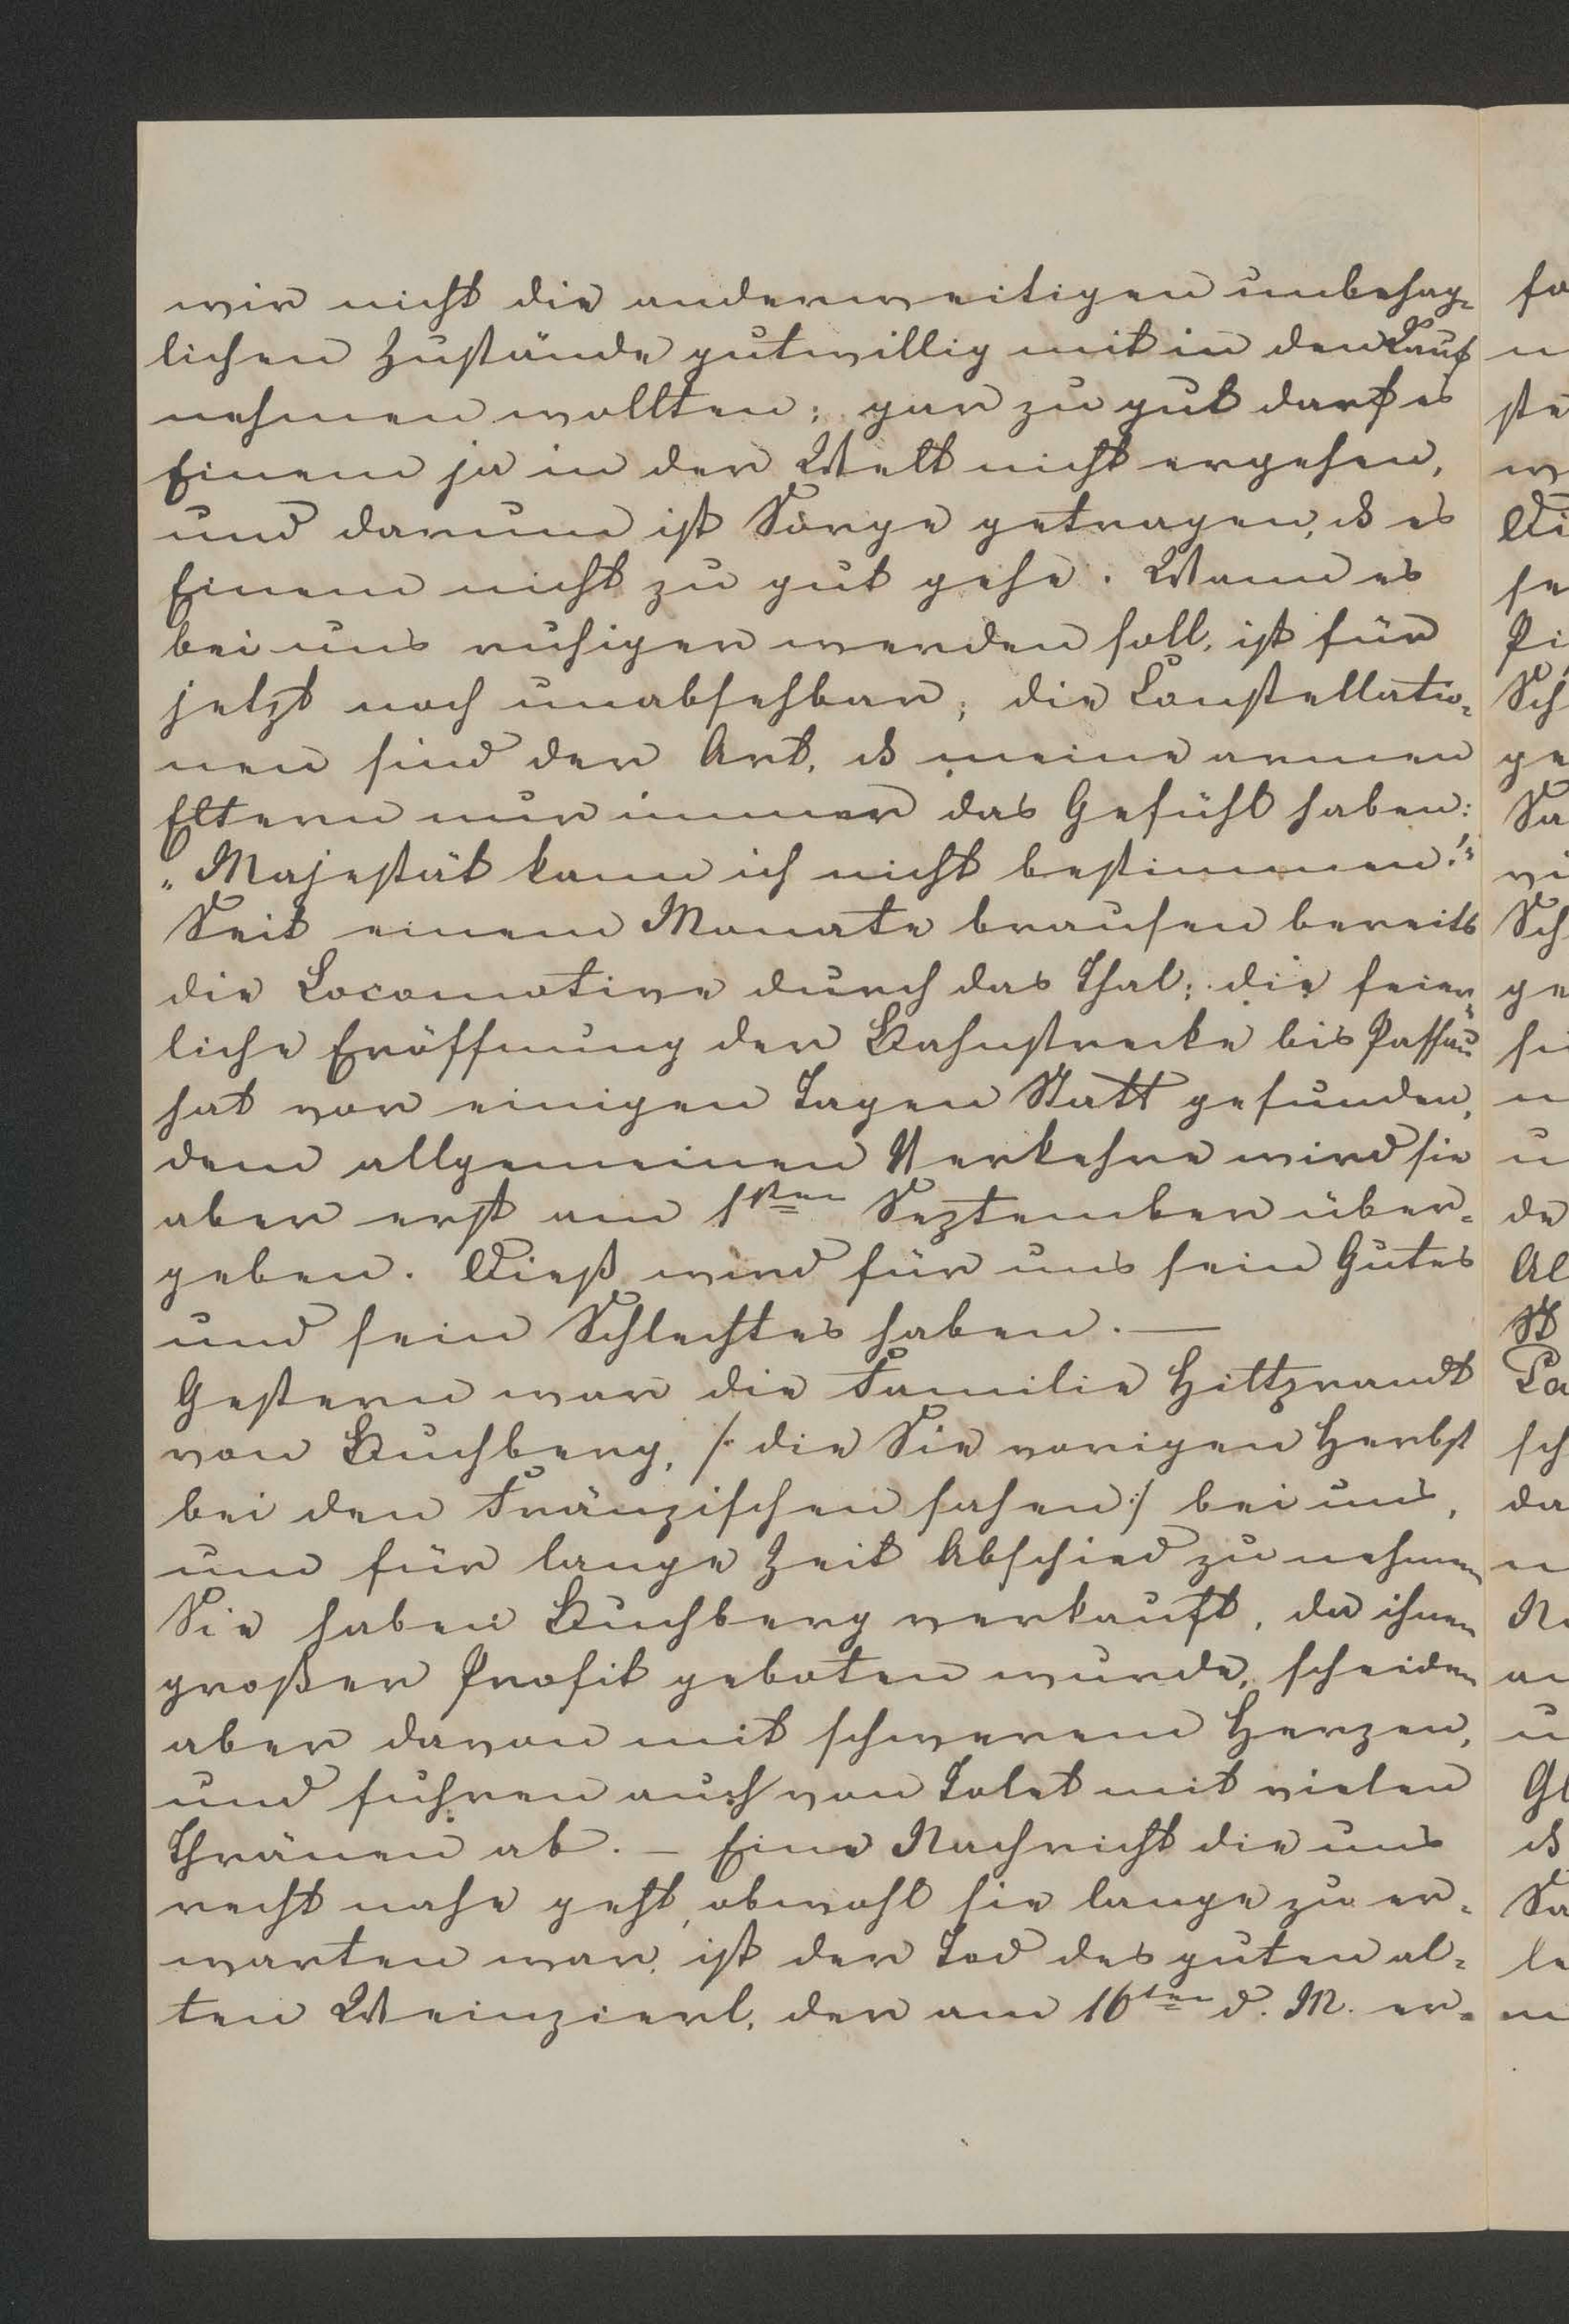 wir nicht die anderweitigen unbehag=
lichen Zustände gutwillig mit in den Kauf
nehmen wollten; gar zu gut darf es
Einem ja in der Welt nicht ergehen,
und darum ist Sorge getragen, dß es
Einem nicht zu gut gehe. Wann es
bei uns ruhiger werden soll, ist für
jetzt noch unabsehbar; die Constellatio=
nen sind der Art, dß meine armen
Eltern nur immer das Gefühl haben:
„Majestät kann ich nicht bestimmen!"
Seit einem Monate brausen bereits
die Locomotive durch das Thal; die feier=
liche Eröffnung der Bahnstrecke bis Passau
hat vor einigen Tagen Statt gefunden,
dem allgemeinen Verkehre wird sie
aber erst am 1sten September über=
geben. Dieß wird für uns sein Gutes
und sein Schlechtes haben. —
Gestern war die Familie
von Buchberg, /: die Sie vorigen Herbst
bei den Fränzischen sahen :/ bei uns,
um für lange Zeit Abschied zu nehmen
Sie haben Buchberg verkauft, da ihnen
großer Profit geboten wurde, scheiden
aber davon mit schwerem Herzen,
und fuhren auch von Tolet mit vielen
Thränen ab. — Eine Nachricht die uns
recht nahe geht, obwohl sie lange zu er=
warten war, ist der Tod des guten al=
ten Weinzierl, der am 16ten d. M. er=